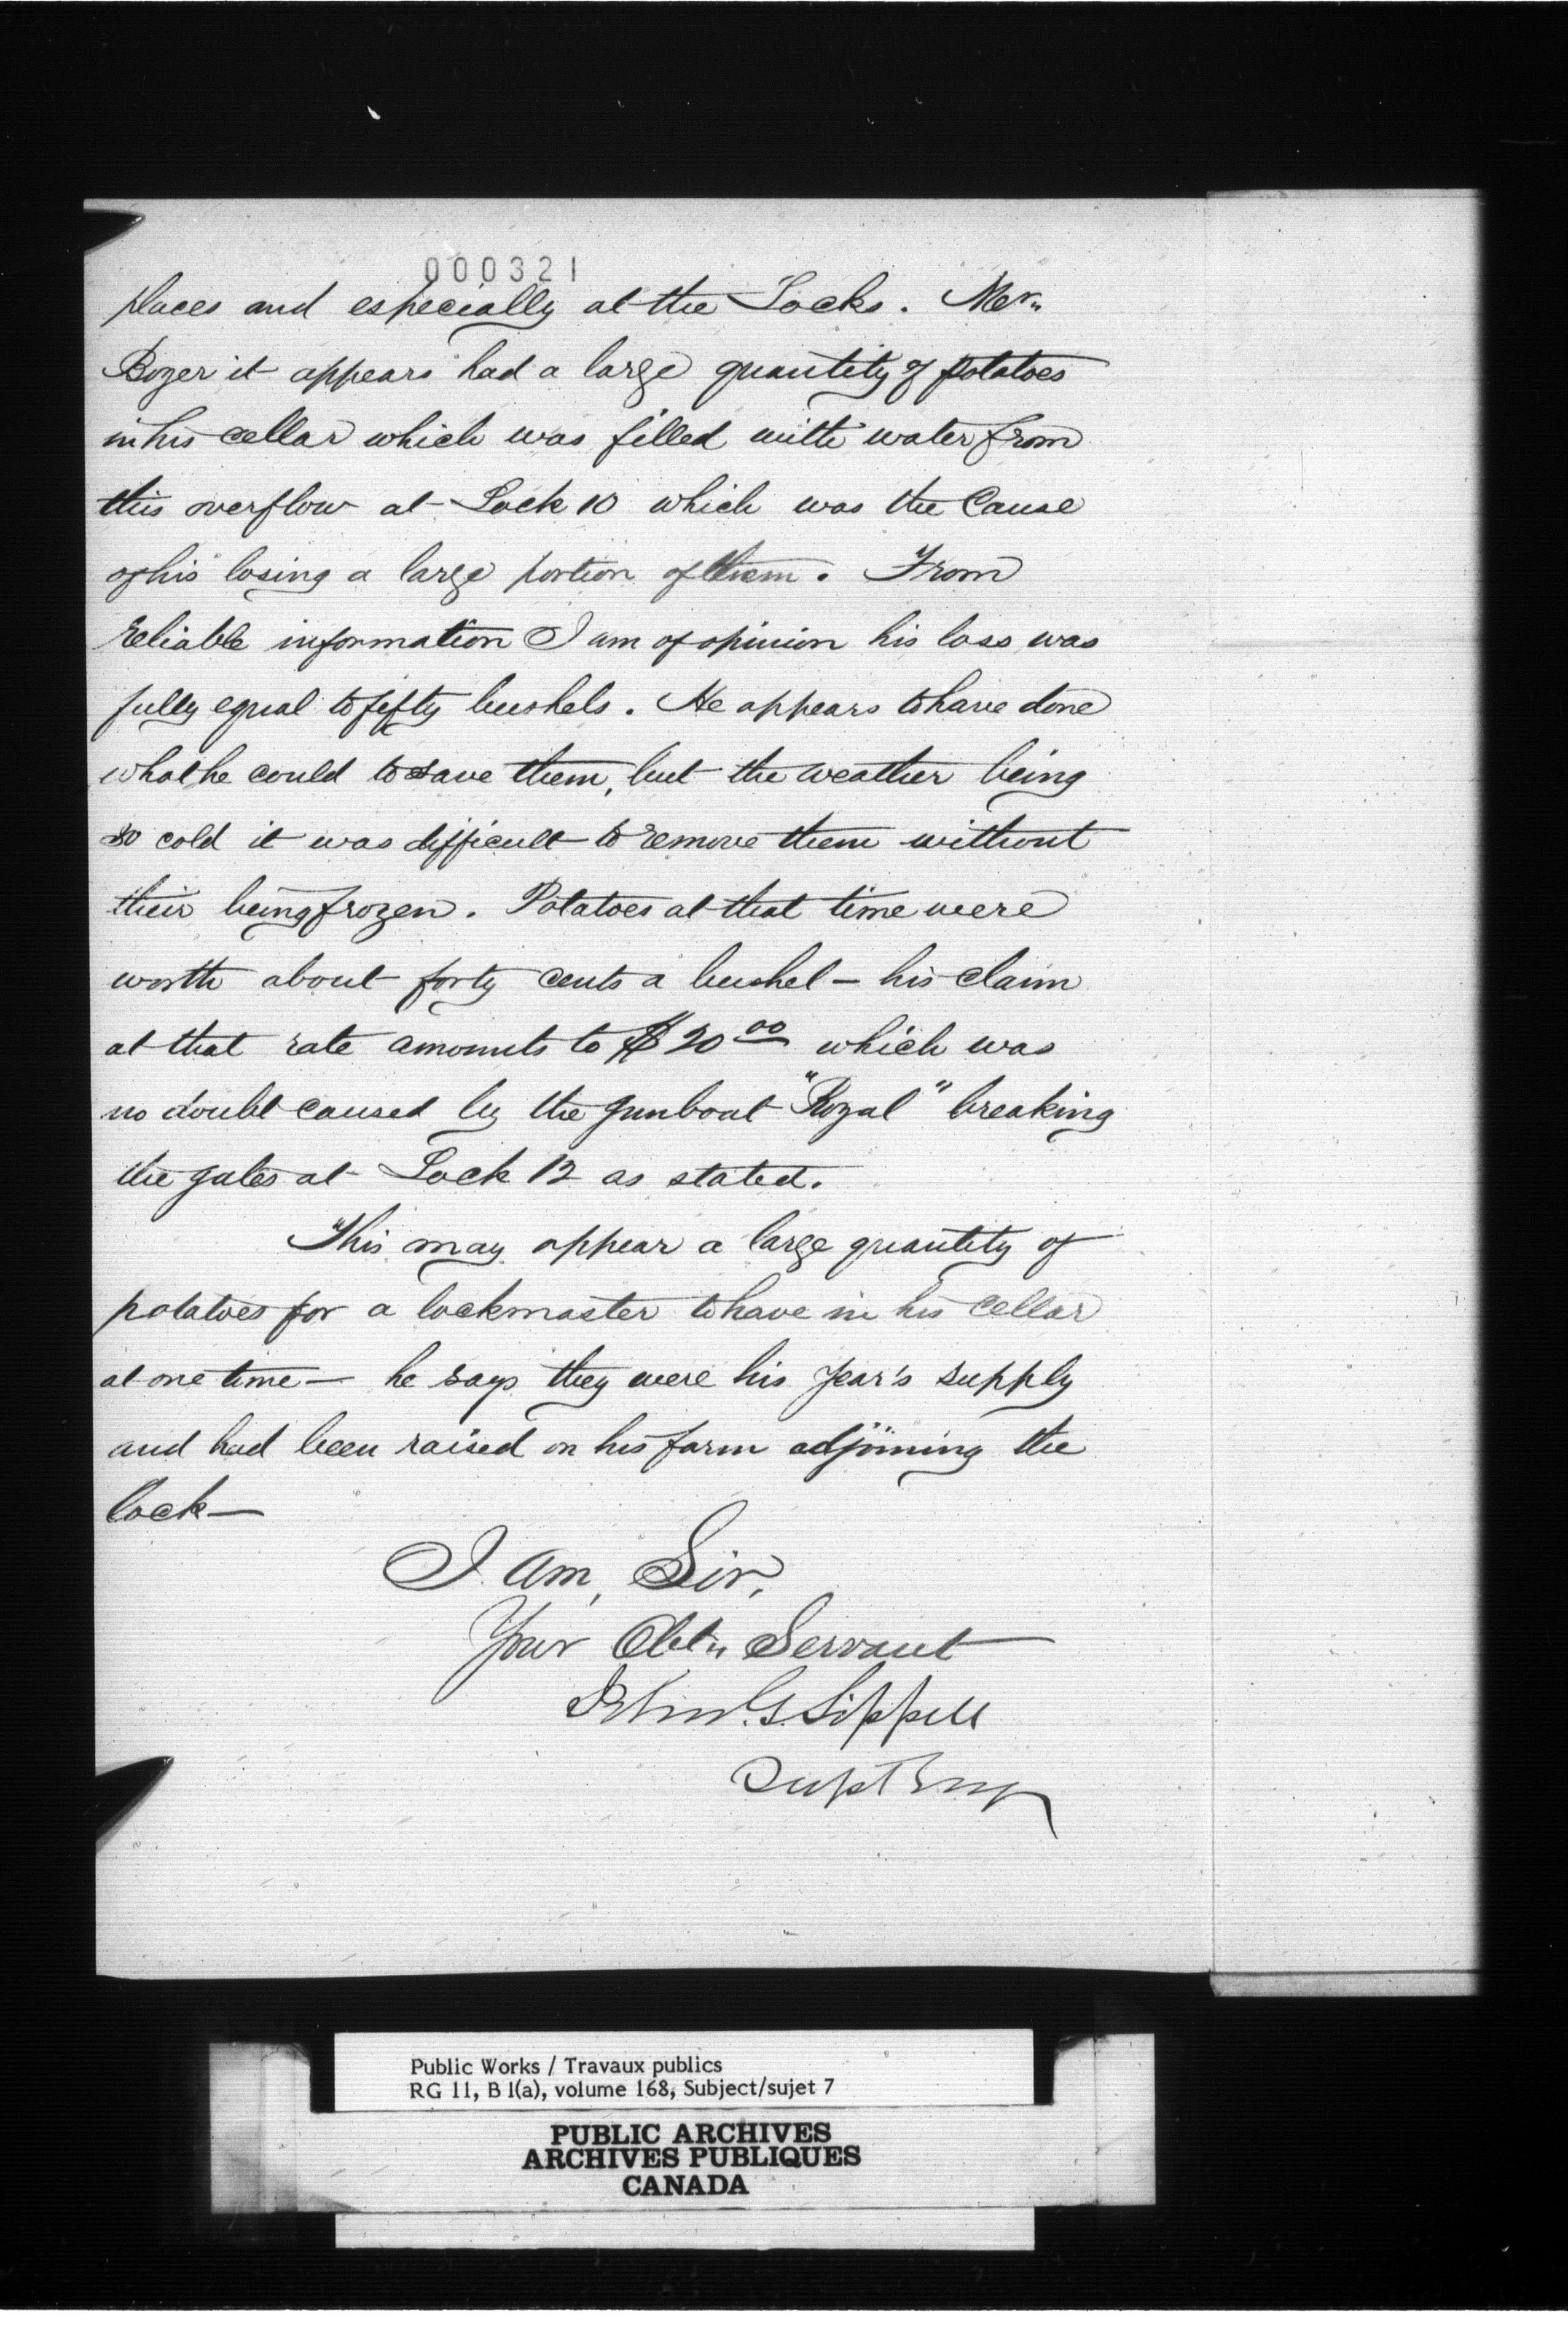 000321
places and especially at the Locks. Mr.
Boyer it appears had a large quantity of potatoes
in his cellar which was filled with water from
this overflow at Lock 10 which was the Cause
of his losing a large portion of them. From
reliable information I am of opinion his loss was
fully equal to fifty bushels. He appears to have done
what he could to save them, but the weather being
so cold it was difficult to remove them without
their being frozen. Potatoes at that time were
worth about forty cents a bushel – his claim
at that rate amounts to $20 00 which was
no doubt caused by the gunboat "Royal" breaking
the gates at Lock 12 as stated.
This may appear a large quantity of
potatoes for a lockmaster to have in his cellar
at one time – he says they were his year's supply
and had been raised on his farm adjoining the
lock –
I am, Sir,
Your Obt. Servant
John G. Sippell
Supt Eng
Public Works / Travaux publics
RG 11, B 1(a), volume 168, Subject/sujet 7
PUBLIC ARCHIVES
ARCHIVES PUBLIQUES
CANADA